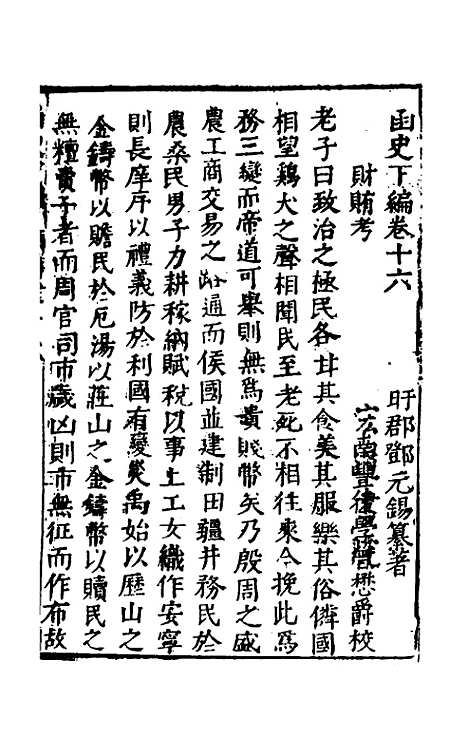 函史下編卷十六
盱郡鄧元錫纂著
財賄考
懋爵校
老子曰政治之極民各甘其食美其服樂其俗隣國
相望鷄犬之聲相聞民至老死不相往來今挽此爲
務三變而帝道可舉則無爲貴賤幣矣乃殷周之盛
農工商交易之路通而侯國並建制田疆井務民於
農桑民男子力耕稼納賦稅以事上工女織作安寧
則長庠序以禮義防於利國有變災禹始以歷山之
金鑄幣以贍民於厄湯以莊山之金鑄幣以贖民之
無𥼷賣子者而周官司市歲凶則市無征而作布故